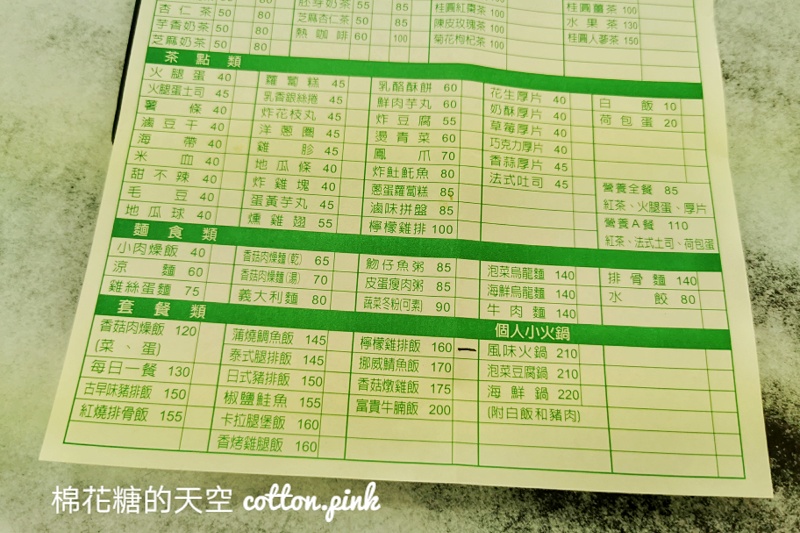 杏仁茶 50 80
芋香奶茶 50 80
芝麻奶茶 50 80
胚芽奶茶 55 85
芝麻杏仁茶 55 85
熱咖啡 60 100
桂圓紅棗茶 100
陳皮玫瑰茶 100
菊花枸杞茶 100
桂圓薑茶 100
水果茶 130
桂圓人蔘茶 150
茶點類
火腿蛋 40
火腿蛋土司 45
薯條 40
滷豆干 40
海帶 40
米血 40
甜不辣 40
毛豆 40
地瓜球 40
蘿蔔糕 45
乳香銀絲捲 45
炸花枝丸 45
洋蔥圈 45
雞胗 45
地瓜條 40
炸雞塊 40
蛋黃芋丸 45
燻雞翅 55
乳酪酥餅 60
鮮肉芋丸 60
炸豆腐 55
燙青菜 60
鳳爪 70
炸魠魠魚 80
蔥蛋蘿蔔糕 85
滷味拼盤 85
檸檬雞排 100
花生厚片 40
奶酥厚片 40
草莓厚片 40
巧克力厚片 40
香蒜厚片 45
法式吐司 45
白飯 10
荷包蛋 20
營養全餐 85
紅茶、火腿蛋、厚片
營養A餐 110
紅茶、法式土司、荷包蛋
麵食類
小肉燥飯 40
涼麵 60
雞絲蛋麵 75
香菇肉燥麵(乾) 65
香菇肉燥麵(湯) 70
義大利麵 80
魩仔魚粥 85
皮蛋瘦肉粥 85
蔬菜冬粉(可素) 90
泡菜烏龍麵 140
海鮮烏龍麵 140
牛肉麵 140
排骨麵 140
水餃 80
套餐類
香菇肉燥飯 120
(菜、蛋)
每日一餐 130
古早味豬排飯 150
紅燒排骨飯 155
蒲燒鯛魚飯 145
泰式腿排飯 145
日式豬排飯 150
椒鹽鮭魚 155
卡拉腿堡飯 160
香烤雞腿飯 160
檸檬雞排飯 160
挪威鯖魚飯 170
香菇燉雞飯 175
富貴牛腩飯 200
個人小火鍋
風味火鍋 210
泡菜豆腐鍋 210
海鮮鍋 220
(附白飯和豬肉)
棉花糖的天空 cotton.pink